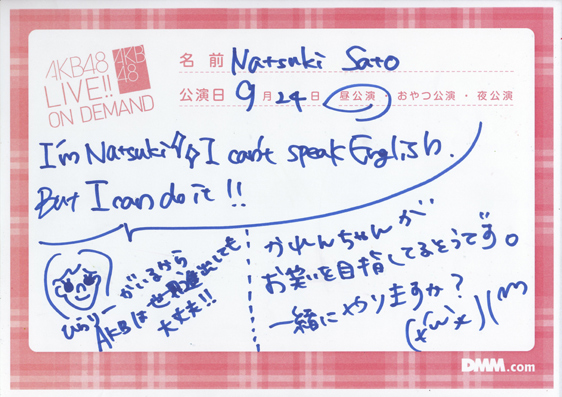 AKB48
LIVE!!
ON DEMAND
AKB
48
名前 Natsuki Sato
公演日 9月24日 昼公演・おやつ公演・夜公演
I'm Natsuki I can't speak English.
But I can do it !!
がいるから
AKBは世界進出しても
大丈夫!!
かれんちゃんが
お笑いを目指してるそうです。
一緒にやりますか?
DMM.com